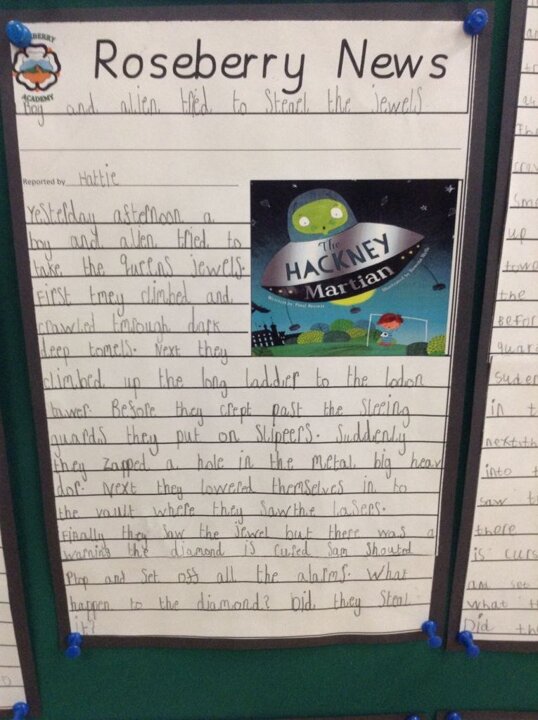 ROSEBERRY
ACADEMY
Roseberry News
Boy and alien tried to Stearl the jewels
Reported by Hattie
Yesterday afternoon a
boy and alien tried to
take the queens jewels.
First tmey climbed and
crawled tmrough dark
deep tomels. Next they
climbed up the long laddier to the lodon
tawer. Before they crept past the sleeing
guards they put on slipeers. Suddenly
they zapped a hole in the metal big heav
dor. Next they lowered themselves in to
the vault where they sawthe lasers.
Finally they saw the jewel but there was a
warning the diamond is cursed Sam shouted
Plop and set off all the alarms. What
happen to the diamond? Did they Steal
it?
The
HACKNEY
Martian